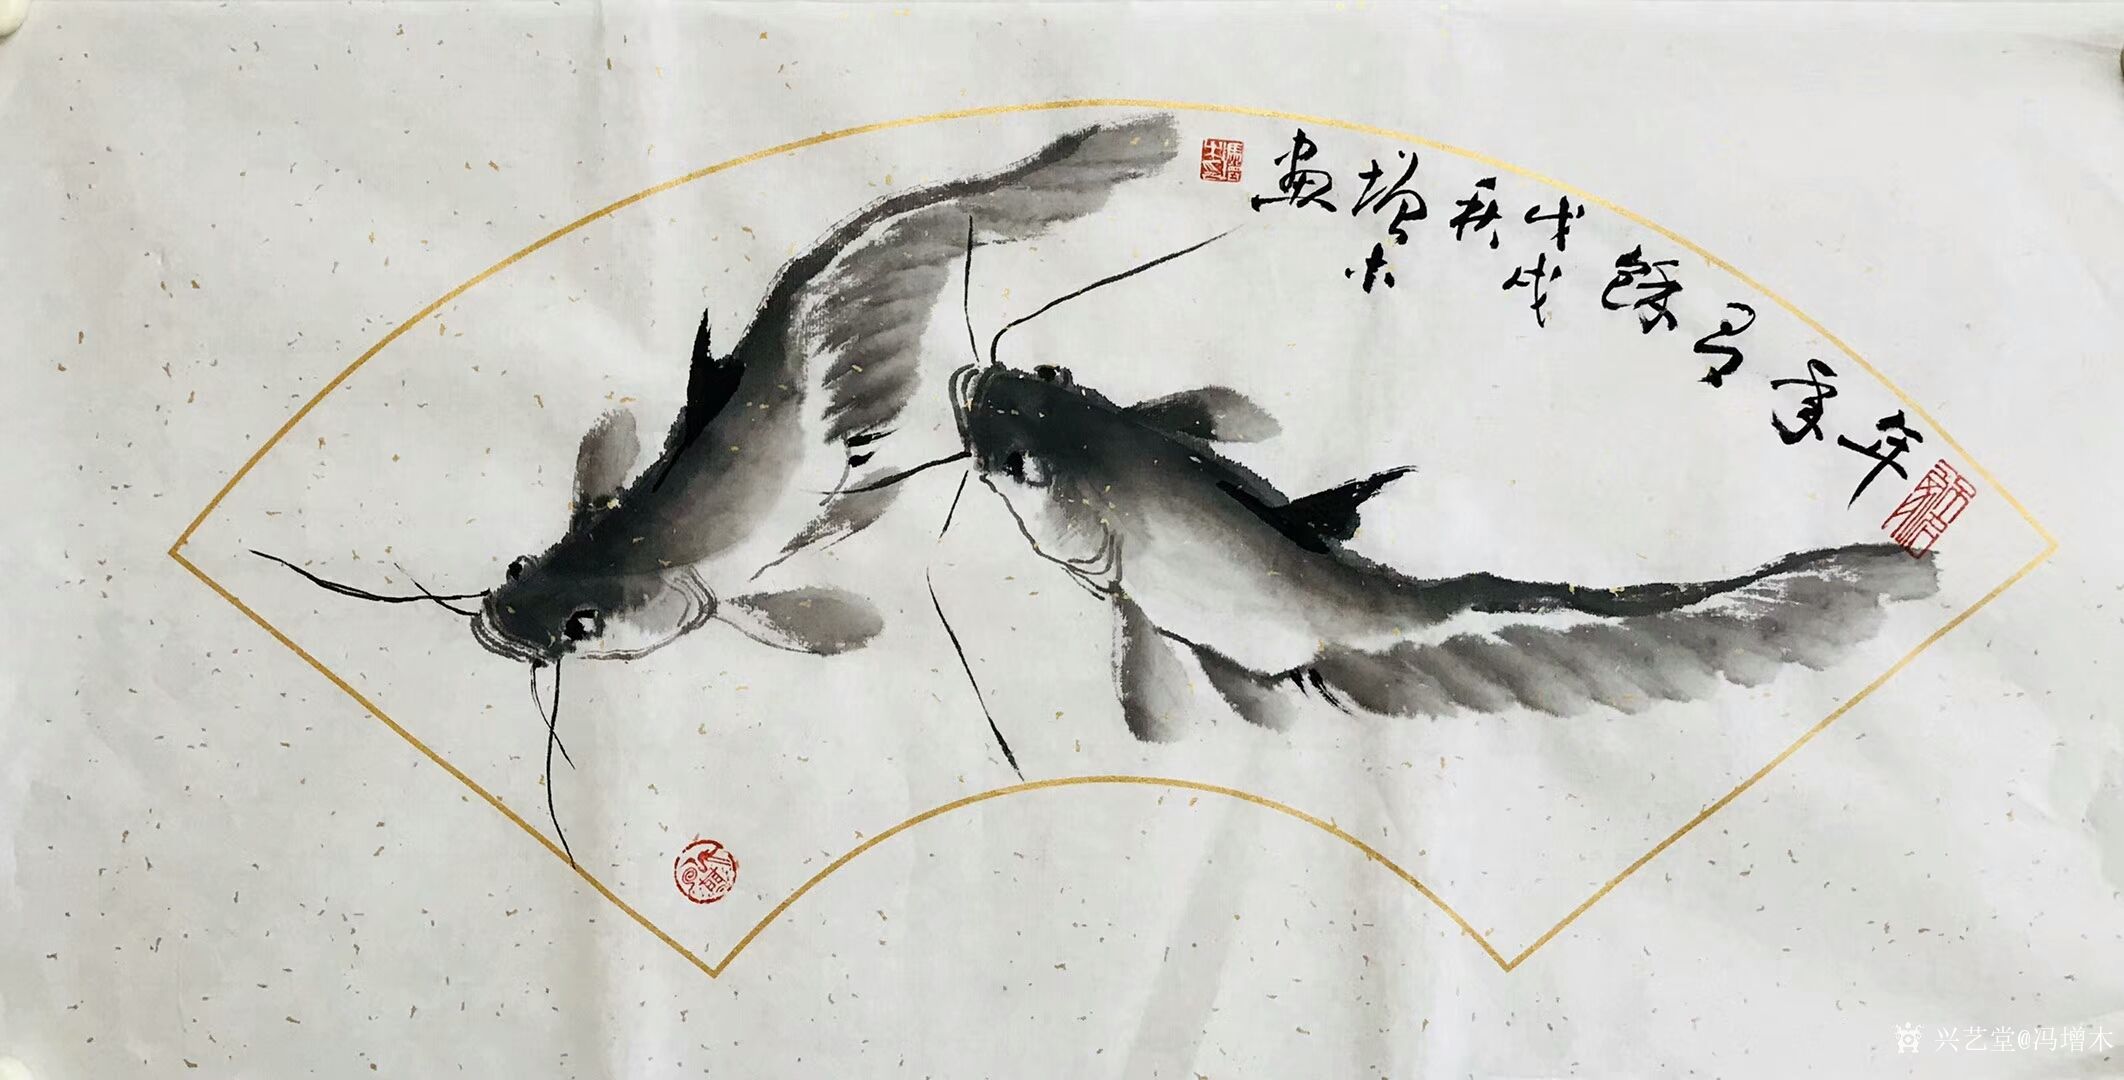 年年有餘
戊戌
秋
增木
畫
兴艺堂@冯增木